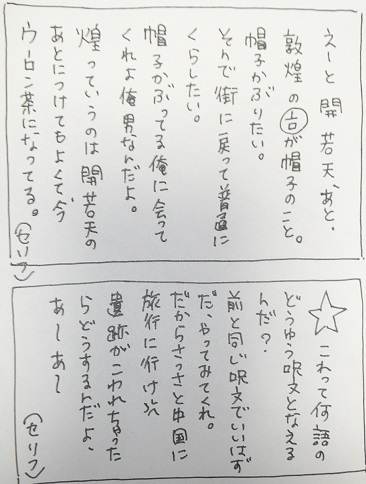 えーと 開若天、あと、
敦煌の占が帽子のこと。
帽子かぶりたい。
そんで街に戻って普通に
くらしたい。
帽子かぶってる俺に会って
くれよ俺男なんだよ。
煌っていうのは開若天の
あとにつけてもよくて、今
ウーロン茶になってる。
(セリフ)
☆ これって何語の
どうゆう呪文となえる
んだ?
前と同じ呪文でいいはず
だ、やってみてくれ。
だからさっさと中国に
旅行に行け
遺跡がこわれちゃった
らどうするんだよ、
あ〜あ〜
(セリフ)